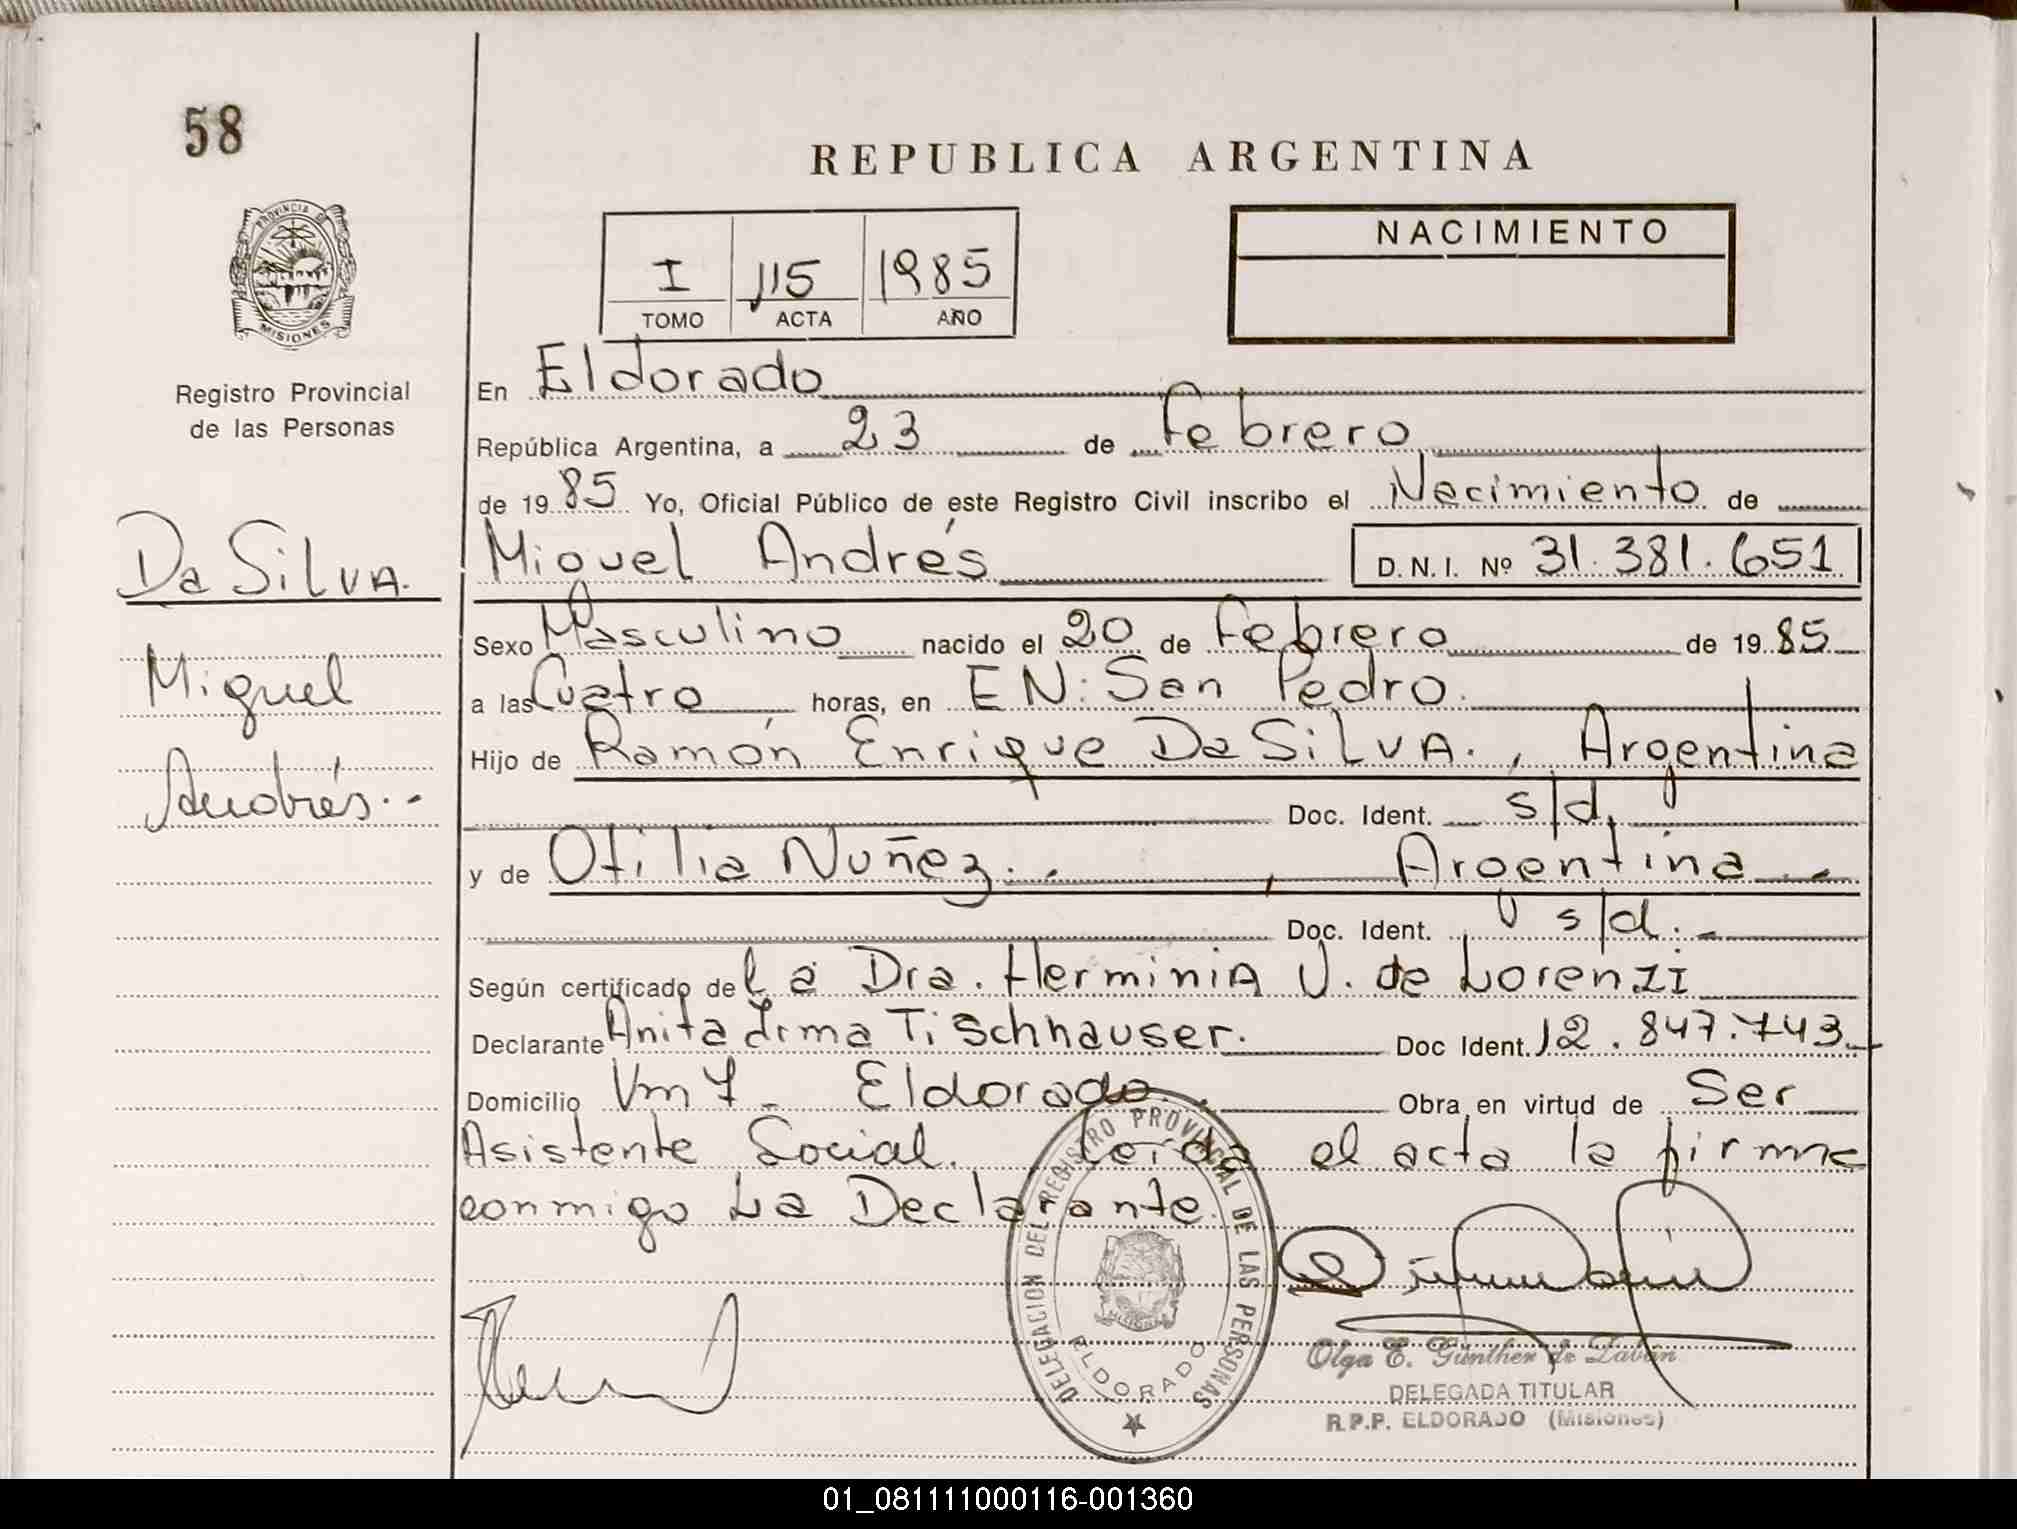 58
REPUBLICA ARGENTINA
PROVINCIA DE
MISIONES
NACIMIENTO
I 115 1985
TOMO ACTA AÑO
Registro Provincial
de las Personas
En Eldorado
República Argentina, a 23 de Febrero
de 1985 Yo, Oficial Público de este Registro Civil inscribo el Nacimiento de
Da SiLVA.
Miguel Andrés
D.N.I. Nº 31.381.651
Sexo Masculino nacido el 20 de Febrero de 1985
Miguel
a las Cuatro horas, en EN: San Pedro.
Hijo de Ramón Enrique Da SiLVA., Argentina
Andrés..
Doc. Ident. s/d.
y de Otilia Nuñez. , Argentina
Doc. Ident. s/d.
Según certificado de la Dra. HerminiA V. de Lorenzi
Declarante Anita Irma Tischhauser. Doc Ident. 12.847.743
Domicilio Km 7 Eldorado. Obra en virtud de Ser
Asistente Social. Leída el acta la firma
conmigo La Declarante.
DELEGACION DEL REGISTRO PROVINCIAL DE LAS PERSONAS
ELDORADO
Olga E. Günther de Zabán
DELEGADA TITULAR
R.P.P. ELDORADO (Misiones)
01_081111000116-001360